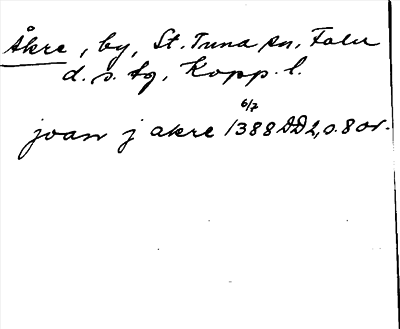 Åkre, by, St. Tuna sn, Falu
d. s. tg, Kopp. l.
6/7
joan j akre 1388 DD 2, o. 8 or.